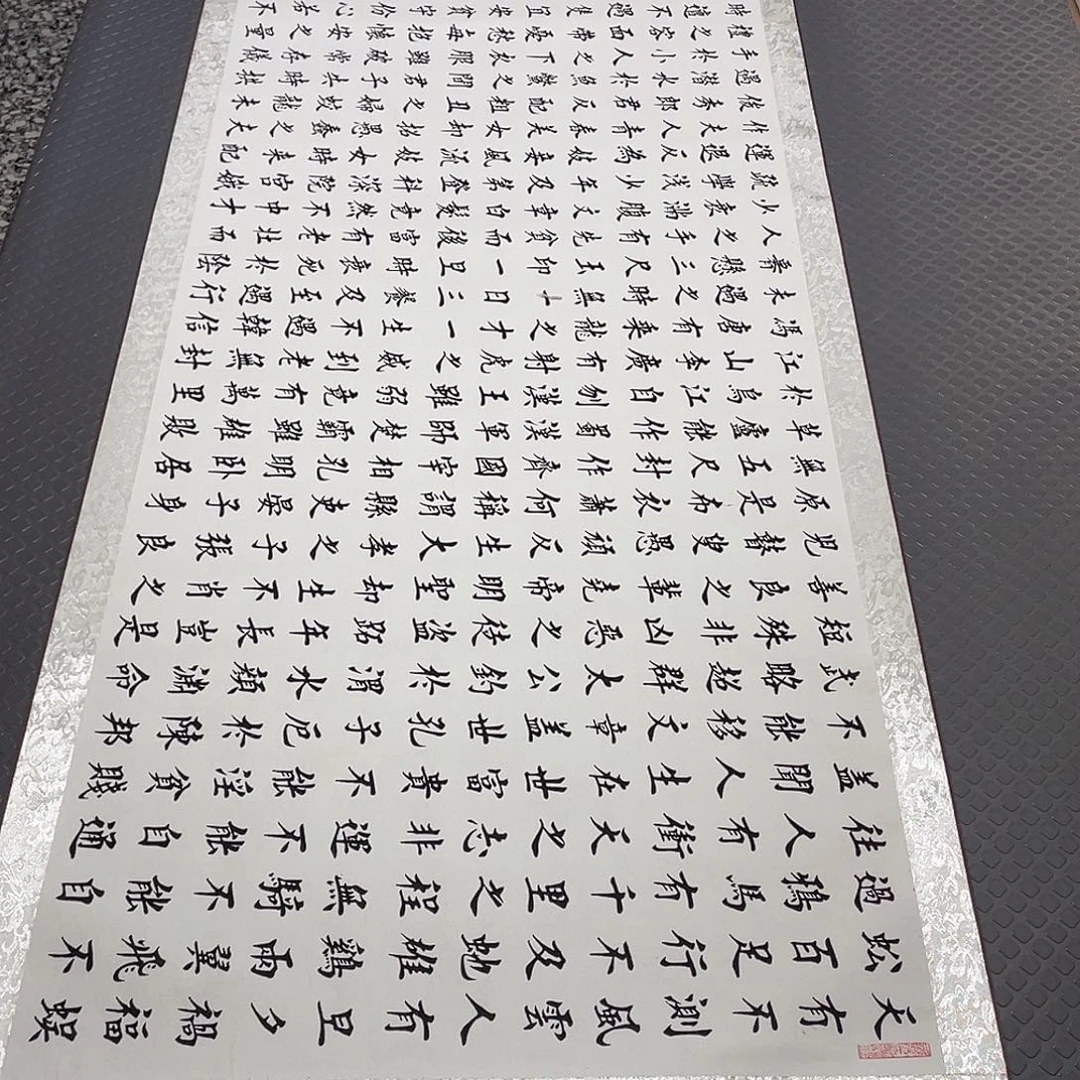 天有不測風雲人有旦夕禍福蜈
蚣百足行不及虵雄鷄兩翼飛不
過鴉馬有千里之程無騎不能自
往人有衝天之志非運不能自通
盖聞人生在世富貴不能淫貧賤
不能移文章盖世孔子厄於陳邦
武略超群太公釣於渭水顏淵命
短殊非凶惡之徒盜跖年長豈是
善良之輩堯帝明聖却生不肖之
兒瞽叟愚頑反生大孝之子張良
原是布衣蕭何稱謂縣吏晏子身
無五尺封作齊國宰相孔明卧居
草廬能作蜀漢軍師楚霸雖雄敗
於烏江自刎漢王雖弱竟有萬里
江山李廣有射虎之威到老無封
馮唐有乘龍之才一生不遇韓信
未遇之時無一日三餐及至遇行
懸三尺玉印一旦時衰死於陰
人之手有先貧而後富有老壯而
少衰滿腹文章白髮竟然不中才
疏學淺少年及第登科深院宮娥
運退反為妓妾風流妓女時來配
作夫人青春美女却招愚蠢之夫
俊秀郎君反配粗丑之婦蛟龍未
遇潛水於魚鱉之間君子失時拱
手於小人之下衣服雖破常存儀
禮之容面帶憂愁每抱懷安之量
時遭不遇只宜安貧守份心若不